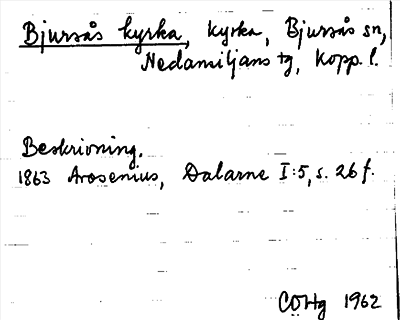 Bjursås kyrka, kyrka, Bjursås sn,
Nedansiljans tg, Kopp. l.
Beskrivning.
1863 Arosenius, Dalarne I:5, s. 26 f.
COHg 1962